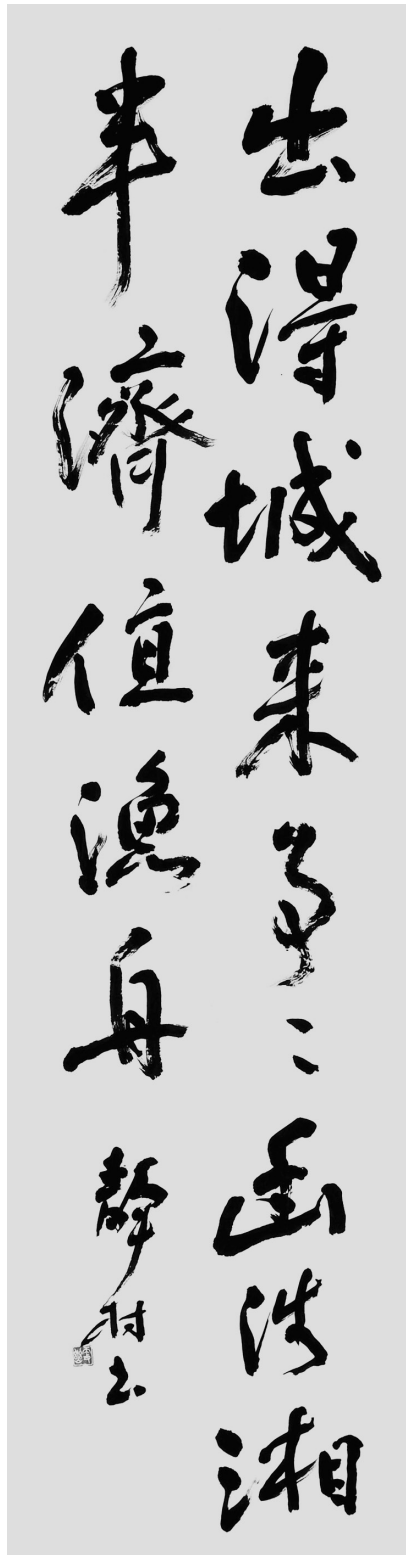 出得城来事々幽涉湘
半濟值漁舟
靜村書